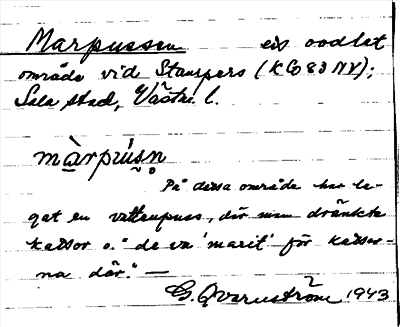 Marpussen eis oodlat
område vid Stampers (KG 83 NV);
Sala stad, Västm l.
màrpúsn
På dessa område har le-
gat en vattenpuss, där man dränkte
kattor o. "de va 'marit' för kattor-
na där." —
G. Qvarnström 1943